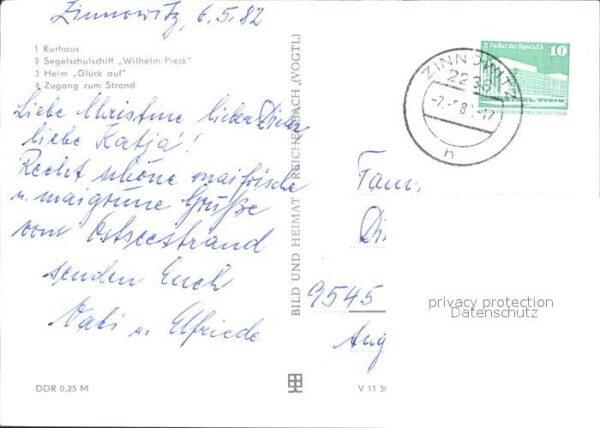 Zinnowitz, 6.5.82
1 Kurhaus
2 Segelschulschiff „Wilhelm Pieck"
3 Heim „Glück auf"
4 Zugang zum Strand
Liebe Christine lieber Dieter
liebe Katja!
Recht schöne maifrische
u. maigrüne Grüße
vom Ostseestrand
senden Euch
u. Elfriede
DDR 0,25 M
BILD UND HEIMAT REICHENBACH (VOGTL)
V 11 50
Palast der Republik 10
ZINNOWITZ
2238
n
Fam.
Di
9545
Aug
privacy protection
Datenschutz